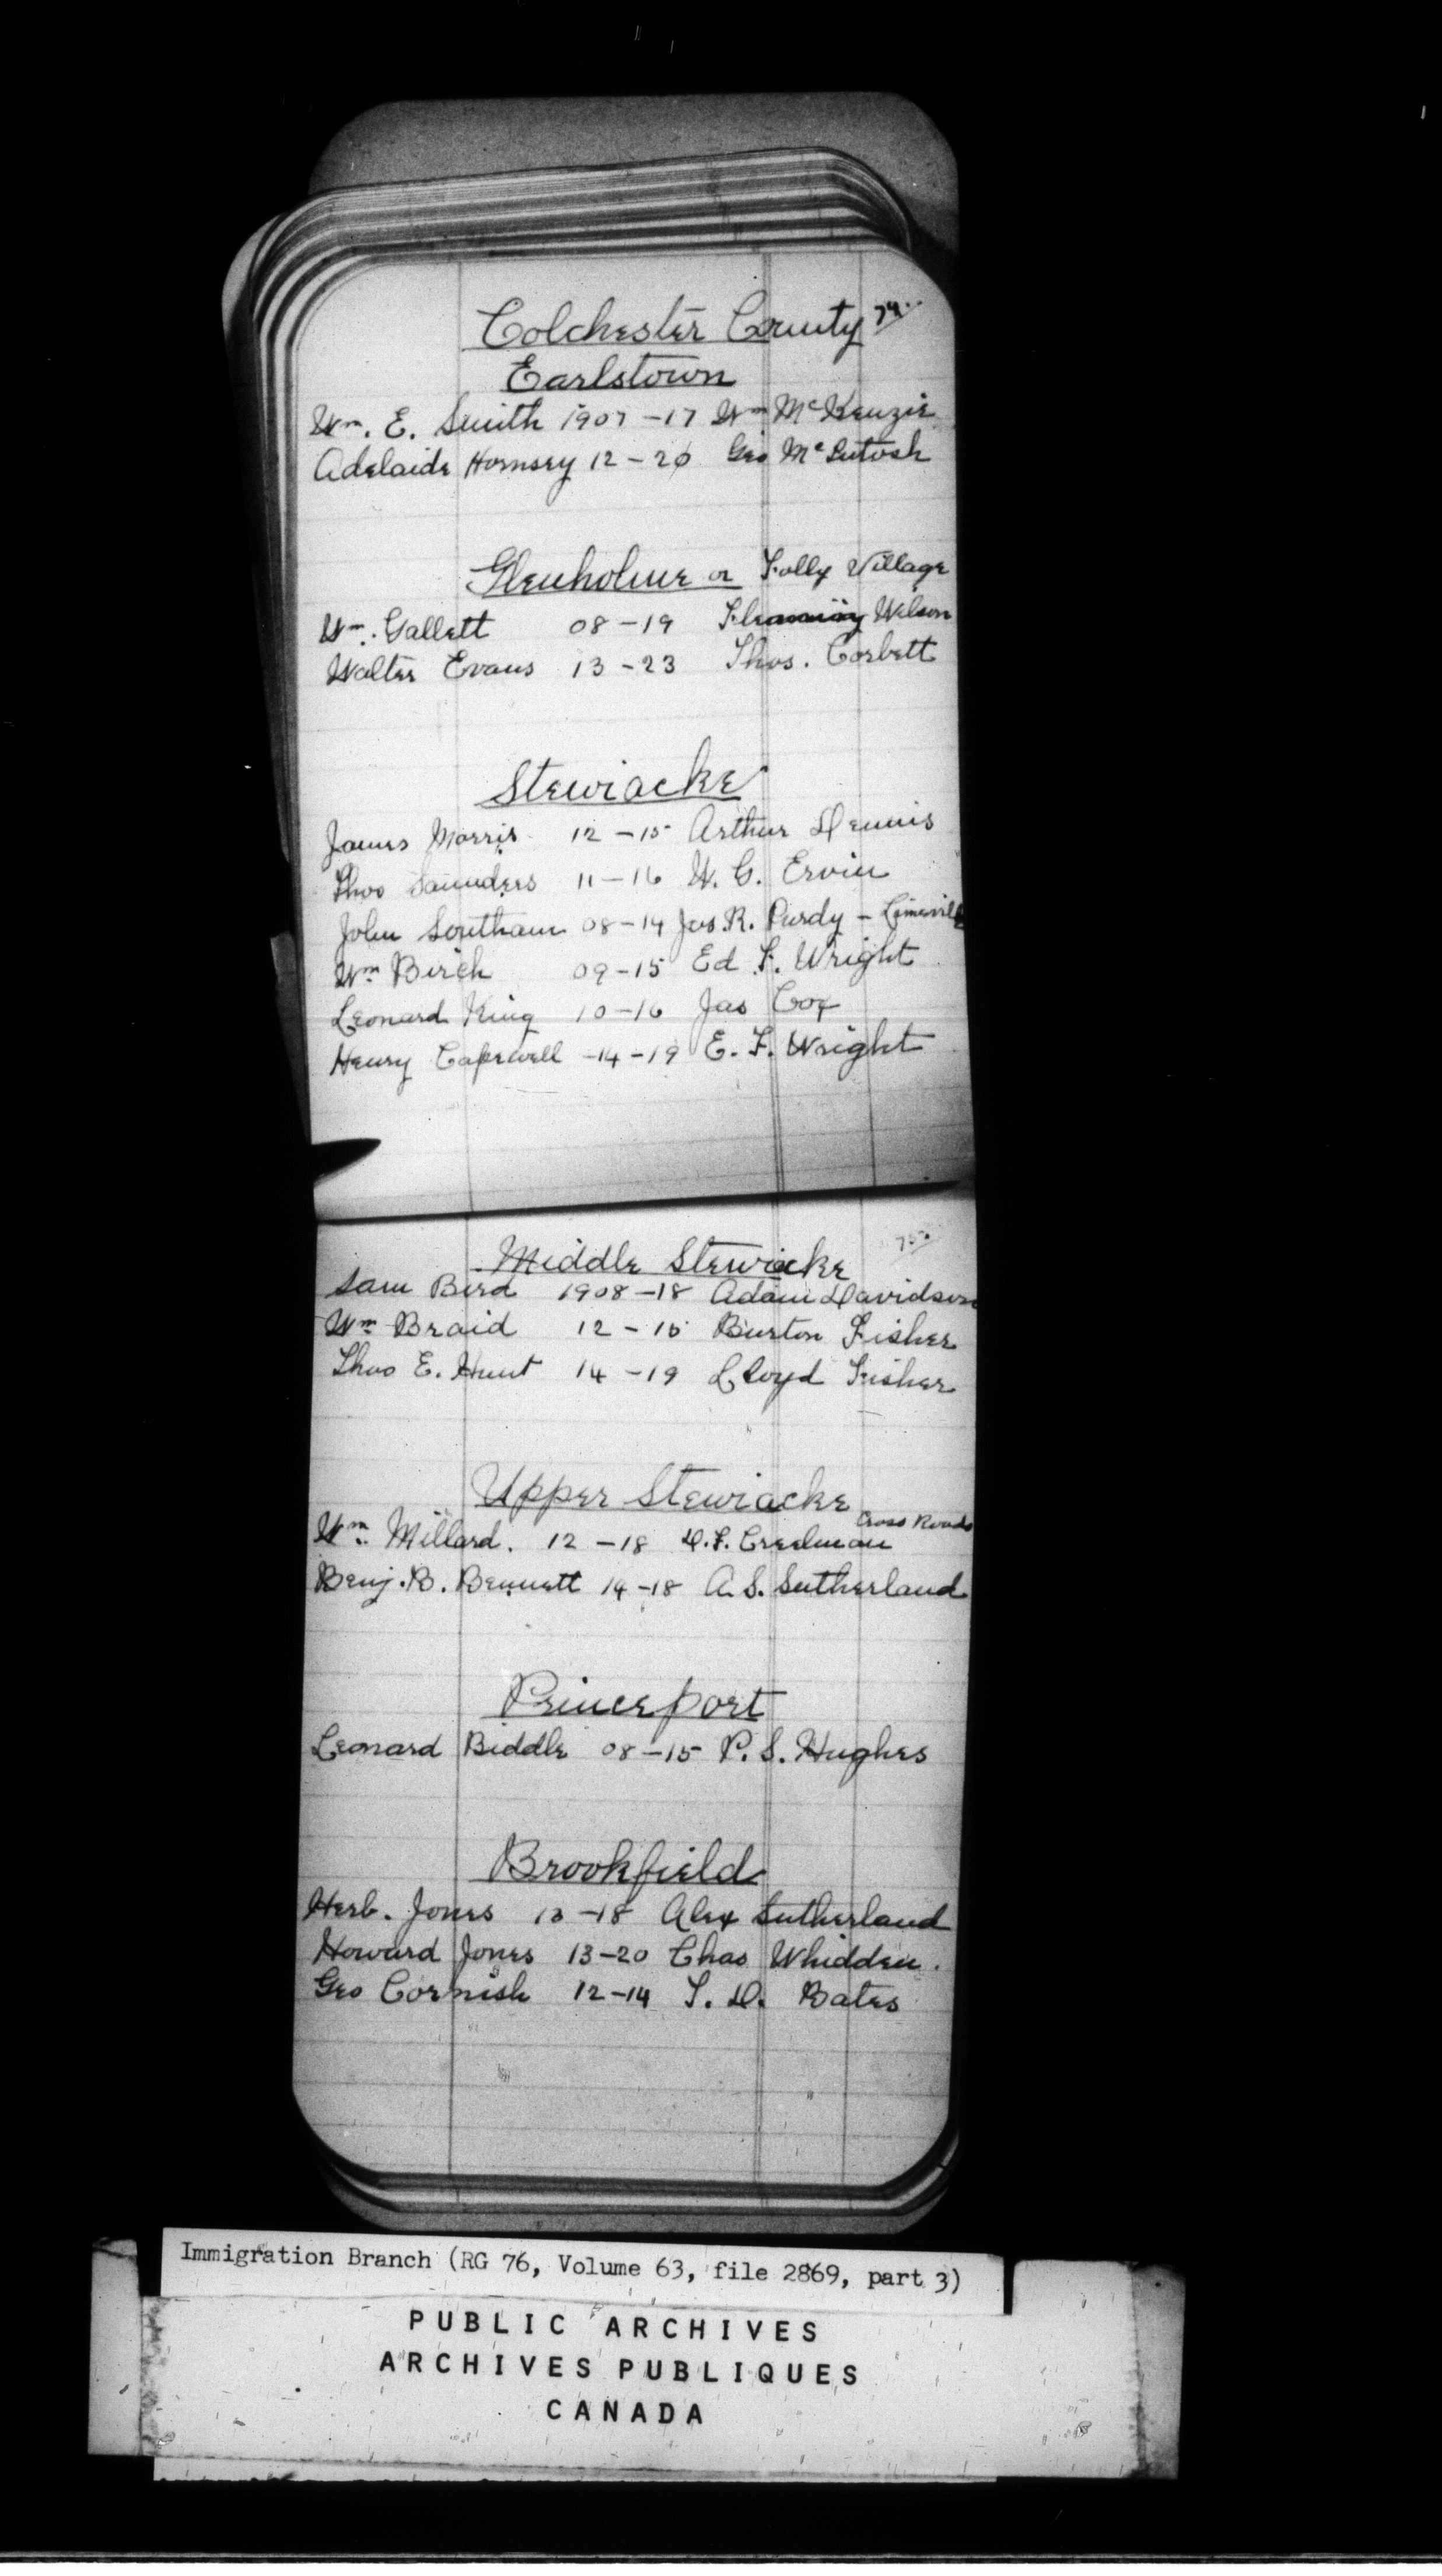 Colchester County 74
Earlstown
Wm. E. Smith 1907-17 Wm McKenzie
Adelaide Hornsey 12-20 Geo McIntosh
Glenholme or Folly Village
Wm. Gallett 08-19 Fleming Wilson
Walter Evans 13-23 Thos. Corbett
Stewiacke
James Morris 12-15 Arthur Dennis
Thos Saunders 11-16 W. G. Ervin
John Southam 08-14 Jas. R. Purdy -
Wm Birch 09-15 Ed F. Wright
Leonard King 10-16 Jas Cox
Henry Capewell -14-19 E. F. Wright
Middle Stewiacke 75
Sam Bird 1908-18 Adam Davidson
Wm Braid 12-15 Burton Fisher
Thos E. Hunt 14-19 Lloyd Fisher
Upper Stewiacke
Cross Roads
Wm. Millard. 12-18 D.F. Creelman
Benj. B. Bennett 14-18 A. S. Sutherland
Princeport
Leonard Biddle 08-15 P. S. Hughes
Brookfield
Herb. Jones 13-18 Alex Sutherland
Howard Jones 13-20 Chas Whidden.
Geo Cornish 12-14 T. D. Bates
Immigration Branch (RG 76, Volume 63, file 2869, part 3)
PUBLIC ARCHIVES
ARCHIVES PUBLIQUES
CANADA